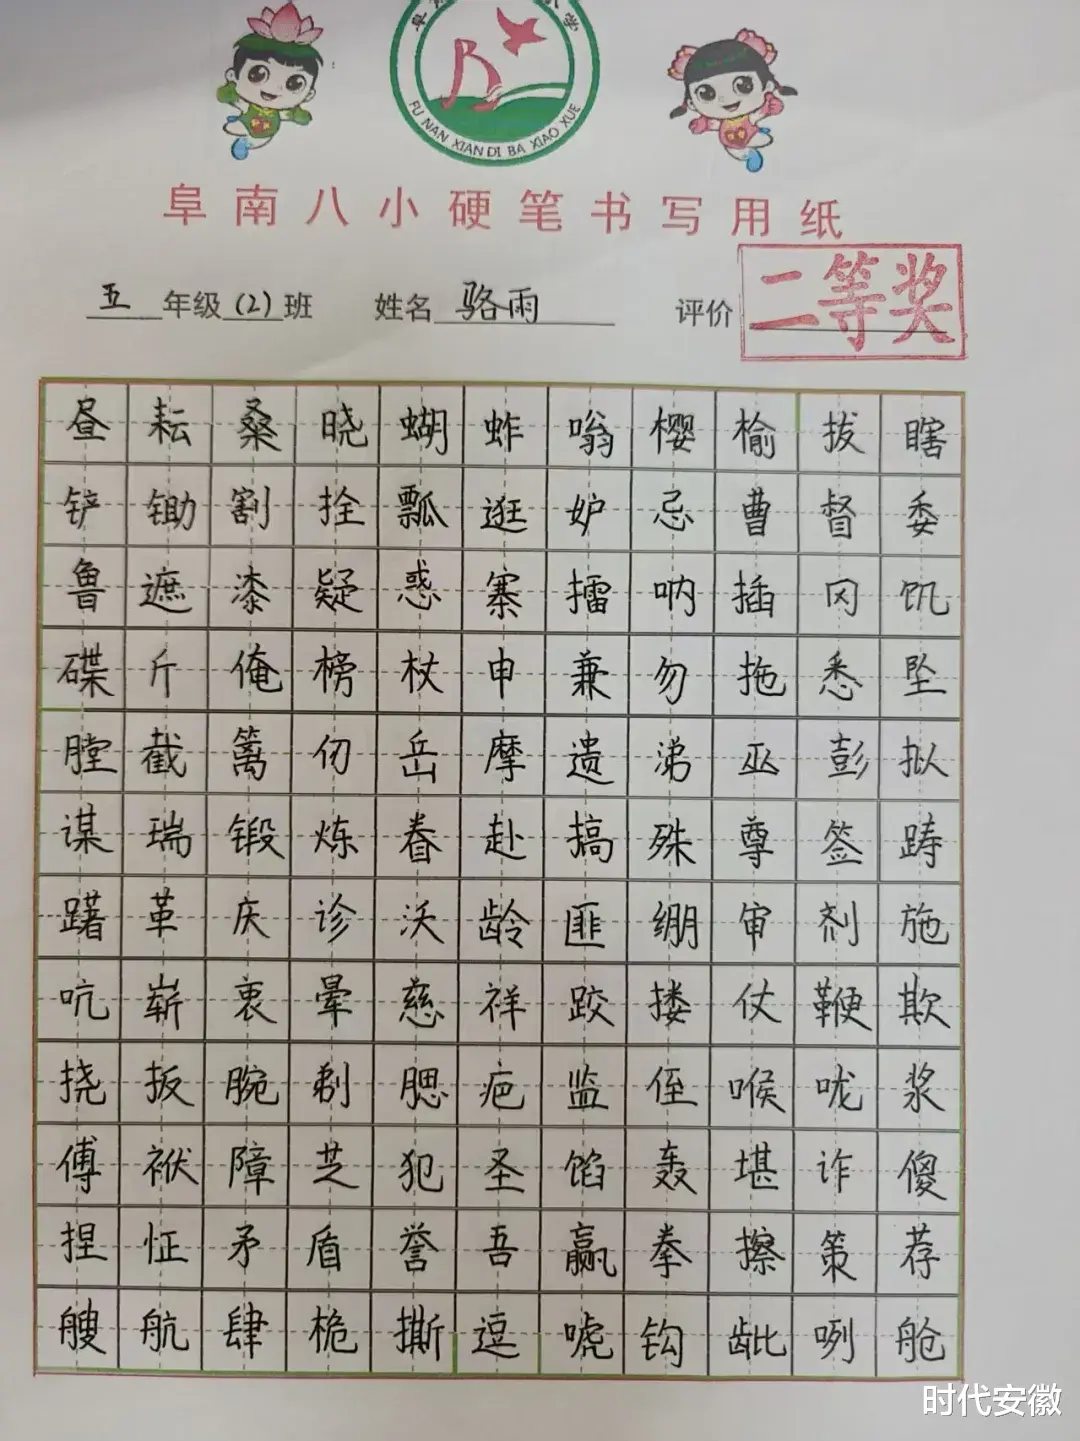 FU NAN XIAN DI BA XIAO XUE
阜南八小硬笔书写用纸
五年级(2)班 姓名 骆雨 评价 二等奖
昼耘桑晓蝴蚱嗡樱榆拔瞎
铲锄割拴瓢逛妒忌曹督委
鲁遮漆疑惑寨擂呐插冈饥
碟斤俺榜杖申兼勿拖悉坠
膛截篱仞岳摩遗涕巫彭拟
谋瑞锻炼眷赴搞殊尊签踌
躇革庆诊沃龄匪绷审剂施
吭崭衷晕慈祥跤搂仗鞭欺
挠扳腕剃腮疤监侄喉咙浆
傅袱障芝犯圣馅轰堪诈傻
捏怔矛盾誉吾赢拳擦策荐
艘航肆桅撕逗唬钩龇咧舱
时代安徽